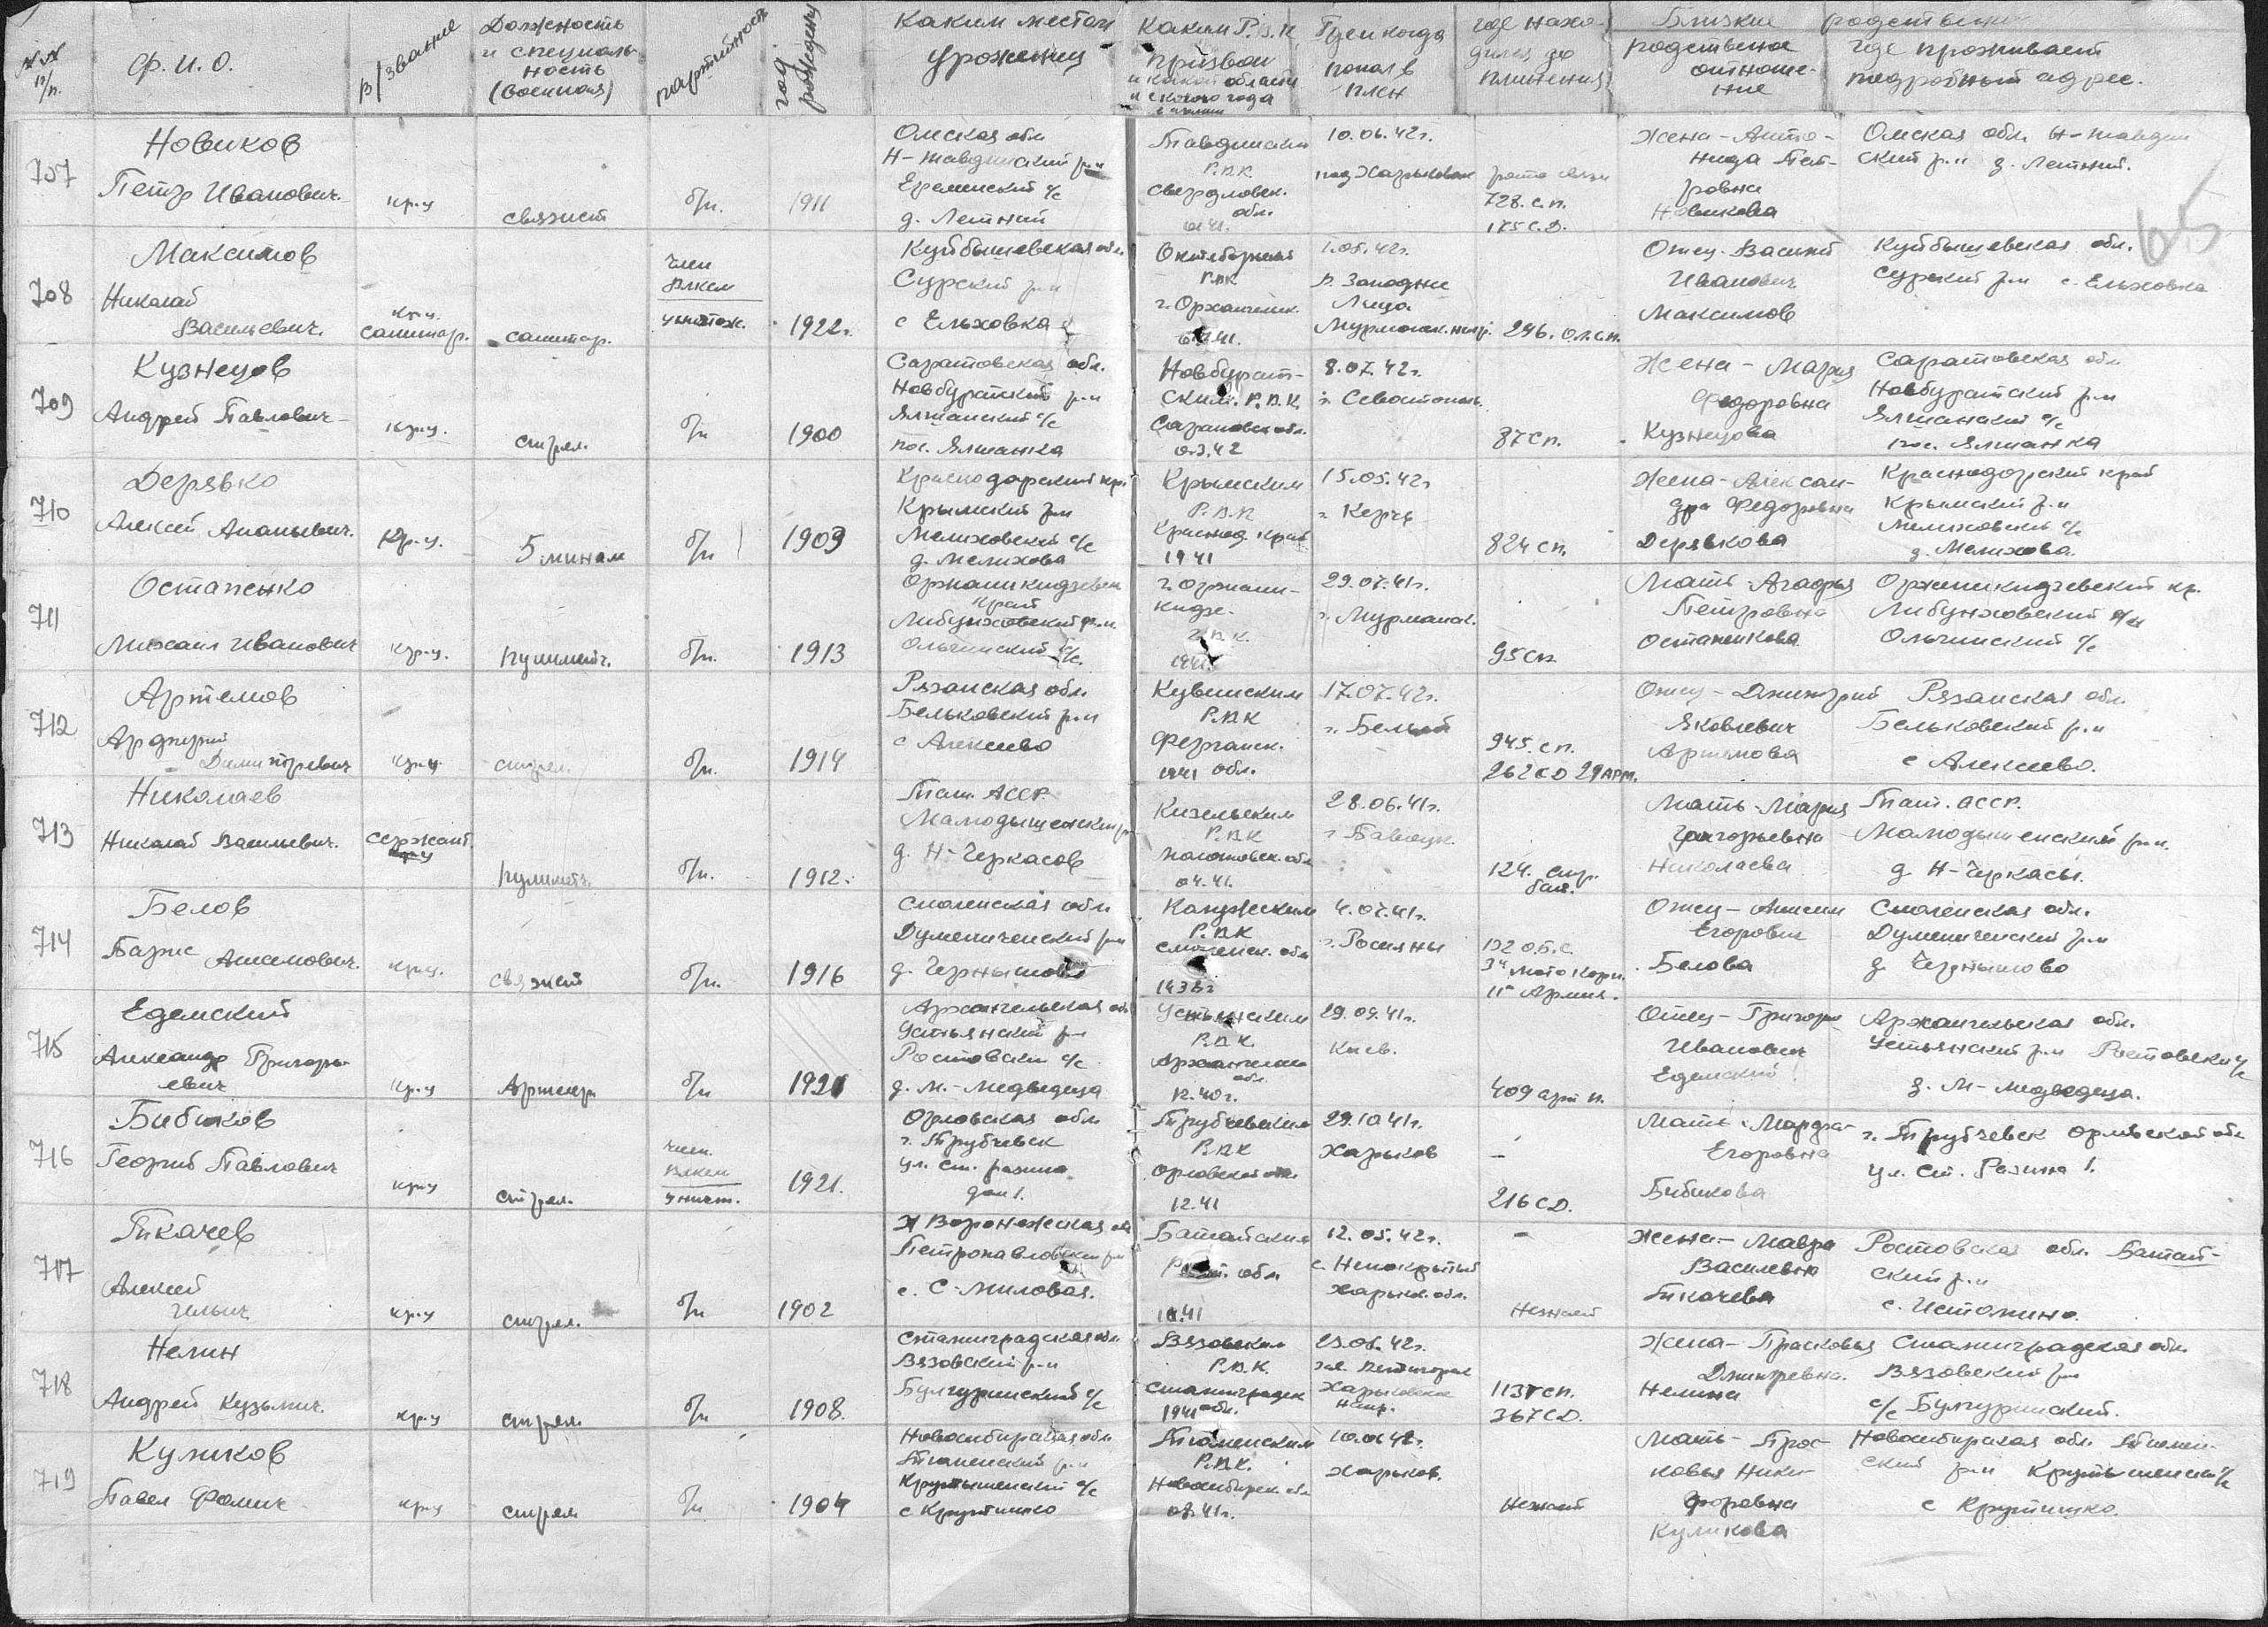 №№ п/п.
Ф. И. О.
В/звание
Должность
и специаль-
ность
(военная)
партийность
год
рождения
Каким местом
уроженец
Каким Р.В.К
призван
и какой области
и с какого года
в армии
Где и когда
попал в
плен
где нахо-
дился до
пленения
Близкие родственни
родственное
отноше-
ние
где проживает
подробный адрес.
65
707
Новиков
Петр Иванович.
кр-ц
связист
б/п.
1911
Омская обл
Н-тавдинский р-н
Еременский с/с
д. Летний
Тавдинским
Р.В.К
свердловск.
обл.
10.06.42г.
под Харьковом
рота связи
728. с.п.
175 с.д.
Жена - Анто-
нида Пет-
ровна
Новикова
Омская обл. Н-тавдин
ский р-н д. Летний.
708
Максимов
Николай
Васильевич.
кр-ц.
санитар.
санитар.
член
влксм
уничтож.
1922г.
Куйбышевская обл.
Сурский р-н
с Ельховка
Октябрьским
Р.В.К
г. Архангельск.
1.05.42г.
р. Западне
Лица.
Мурманск. напр.
Отец - Василий
Иванович
Максимов
Куйбышевская обл.
Сурский р-н с. Ельховка
709
Кузнецов
Андрей Павлович
кр-ц.
стрел.
б/п
1900
Саратовская обл.
Новбурасский р-н
Ялшанский с/с
пос. Ялшанка
Новбурас-
ским. Р.В.К.
Саратовск обл.
03.42
8.07.42г.
г. Севастополь.
87 сп.
Жена - Мария
Федоровна
Кузнецова
Саратовская обл
Новбурасский р-н
Ялшанский с/с
пос. Ялшанка
710
Дерявко
Алексей Ананьевич.
Кр-ц.
5 минам
б/п
1909
Краснодарский край
Крымский р-н
Мелиховский с/с
д. Мелихова
Крымским
Р.В.К
Краснод край
1941
15.05.42г
г. Керчь
824 сп.
Жена - Алексан-
дра Федоровна
Дерявкова
Краснодарский край
Крымский р-н
Мелиховский с/с
д. Мелихова.
711
Остапенко
Михаил Иванович
кр-ц.
пулеметч.
б/п.
1913
Орджоникидзевск
край
Либунховский р-н.
Ольгинский с/с.
г. Орджони-
кидзе.
1941
29.07.41г.
г. Мурманск.
95 сп
Мать - Агафья
Петровна
Остапенкова
Орджоникидзевский кр.
Либунховский р/н
Ольгинский с/с
712
Артемов
Дмитревич
кр-ц
стрел.
б/п.
1914
Рязанская обл.
Бельковский р-н
с Алексеево
Кувинским
Р.В.К
Ферганск.
1941 обл.
17.07.42г.
г. Белый
945. сп.
262 СД 29 АРМ.
Отец - Дмитрий
Яковлевич
Артемова
Рязанская обл.
Бельковский р-н
с Алексеево.
713
Николаев
Николай Васильевич.
Сержант
пулеметч.
б/п.
1912.
Тат. АССР.
Мамодышенский р-н
д. Н-Черкасов
Кизельским
Р.В.К
Молотовск. обл
04.41.
28.06.41г.
124. стр.
бат.
Мать - Мария
Григорьевна
Николаева
Тат. АССР.
Мамодышенский р-н.
д Н-Черкасы.
714
Белов
Анисимович.
кр-ц.
связист
б/п.
1916
Смоленская обл
Думенический р-н
д. Чернышово
Калужским
Р.В.К
смоленск. обл
1938г
4.07.41г.
г. Росияны
132 О.Б.С.
3й мото корп.
11я Армия.
Отец - Анисим
Егорович
Белова
Смоленская обл.
Думенический р-н
д. Чернышово
715
Едемский
Александр Григорь-
евич
кр-ц
Артилер.
б/п
1921
Архангельская обл
Устьянский р-н
Ростовский с/с
д. М.-Медведица
Устьянским
Р.В.К.
Архангельск
обл.
12.40г.
29.09.41г.
Киев.
409 арт п.
Отец - Григори
Иванович
Едемский
Архангельская обл.
Устьянский р-н Ростовский с/с
д. М-Медведица.
716
Бибиков
Георгий Павлович
кр-ц
стрел.
член.
влксм
уничт.
1921.
Орловская обл
г. Трубчевск
ул. Ст. разина
дом 1.
Трубчевским
Р.В.К
Орловской обл.
12.41
29.10 41г.
Харьков
–
216 СД.
Мать - Марфа
Егоровна
Бибикова
г. Трубчевск Орловской обл
ул. Ст. Разина 1.
717
Ткачев
Алексей
Ильич
кр-ц
стрел.
б/п
1902
Воронежская обл
Петропавловский р-н
с. С-Миловая.
Батайским
обл
12.05.42г.
с. Непокрытый
Харьк. обл.
–
Незнает
Жена - Мавра
Васильевна
Ткачева
Ростовская обл. Батай-
ский р-н
718
Нелин
Андрей Кузьмич.
кр-ц
стрел.
б/п
1908.
Сталинградская обл.
Вязовский р-н
Булгуринский с/с
Вязовским
Р.В.К.
Сталинградск
1941 обл.
23.06.42г.
Харьковское
напр.
367 СД.
Жена - Прасковья
Дмитревна.
Нелина
Сталинградская обл.
Вязовский р-н
с/с Булгуринский.
719
Куликов
Павел Фомич
кр-ц
стрел
б/п
1904
Новосибирская обл
Тюменский р-н
Крутышенский с/с
с Крутишко
Тюменским
Р.В.К.
Новосибирск обл
Харьков.
Незнает
Мать - Прос-
ковья Ники-
форовна
Куликова
Новосибирская обл. Тюмен-
ский р-н Крутышенский с/с
с Крутишко.